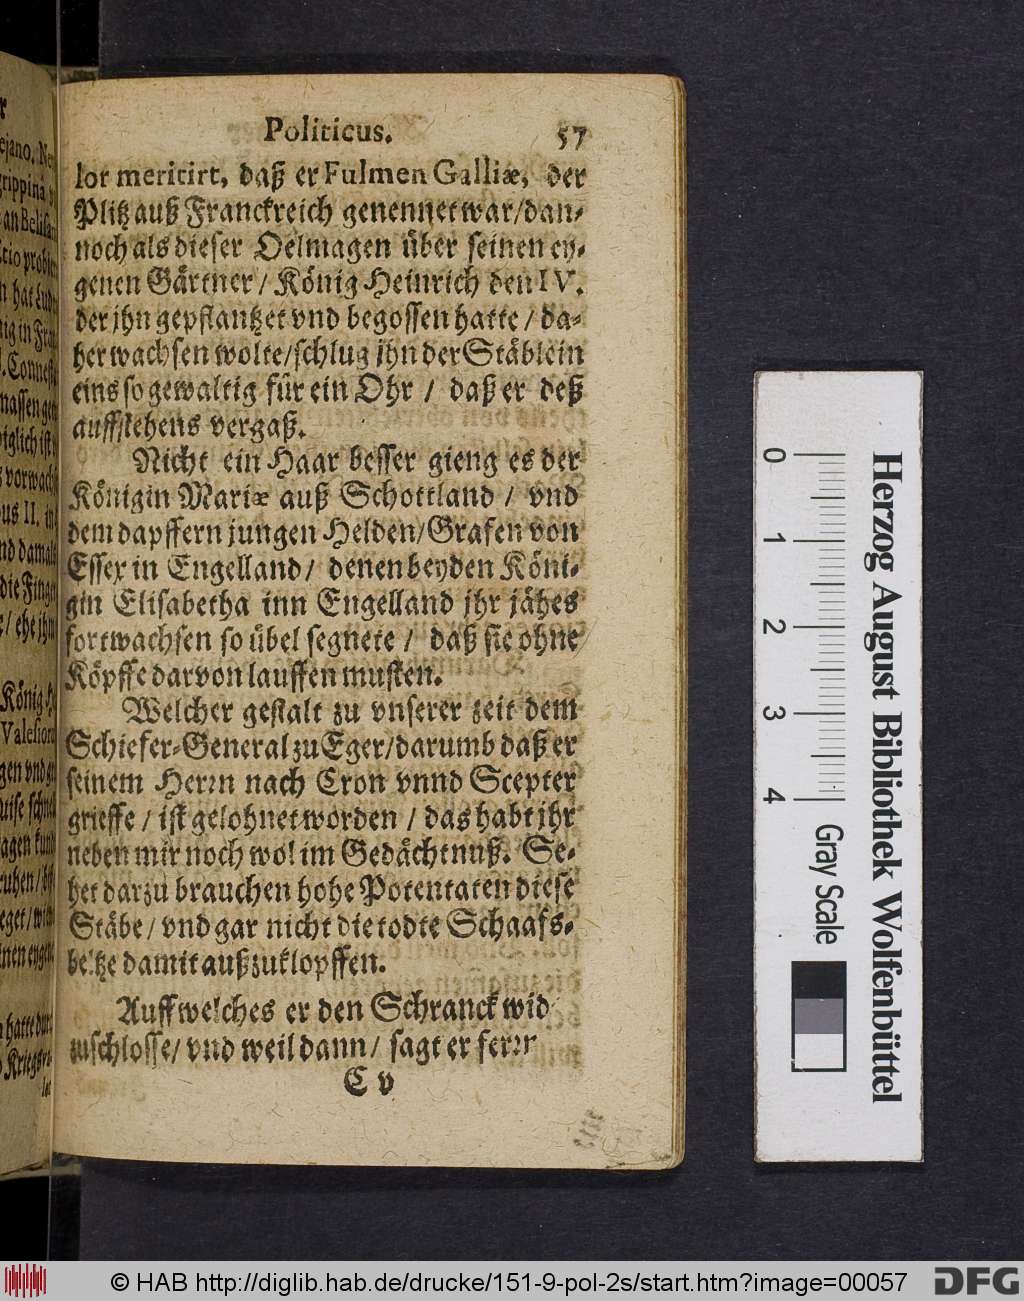 Politicus. 57
lor meritirt, daß er Fulmen Galliæ, der
Plitz auß Franckreich genennet war/dan-
noch als dieser Oelmagen über seinen ey-
genen Gärtner / König Heinrich den IV.
der jhn gepflantzet vnd begossen hatte / da-
her wachsen wolte/schlug jhn der Stäblein
eins so gewaltig für ein Ohr / daß er deß
auffstehens vergaß.
Nicht ein Haar besser gieng es der
Königin Mariæ auß Schottland / vnd
dem dapffern jungen Helden/Grafen von
Essex in Engelland/ denen beyden Köni-
gin Elisabetha inn Engelland jhr jähes
fortwachsen so übel segnete / daß sie ohne
Köpffe darvon lauffen musten.
Welcher gestalt zu vnserer zeit dem
Schiefer-General zu Eger/darumb daß er
seinem Herrn nach Cron vnnd Scepter
grieffe / ist gelohnet worden / das habt jhr
neben mir noch wol im Gedächtnuß. Se-
het darzu brauchen hohe Potentaten diese
Stäbe / vnd gar nicht die todte Schaafs-
beltze damit außzuklopffen.
Auff welches er den Schranck wid
zuschlosse/ vnd weil dann / sagt er ferrr
C v
ejano, Ne
grippina
an Belisa
König H
Valesiorū
Kriegs
lor
0 1 2 3 4
Gray Scale
Herzog August Bibliothek Wolfenbüttel
© HAB http://diglib.hab.de/drucke/151-9-pol-2s/start.htm?image=00057
DFG